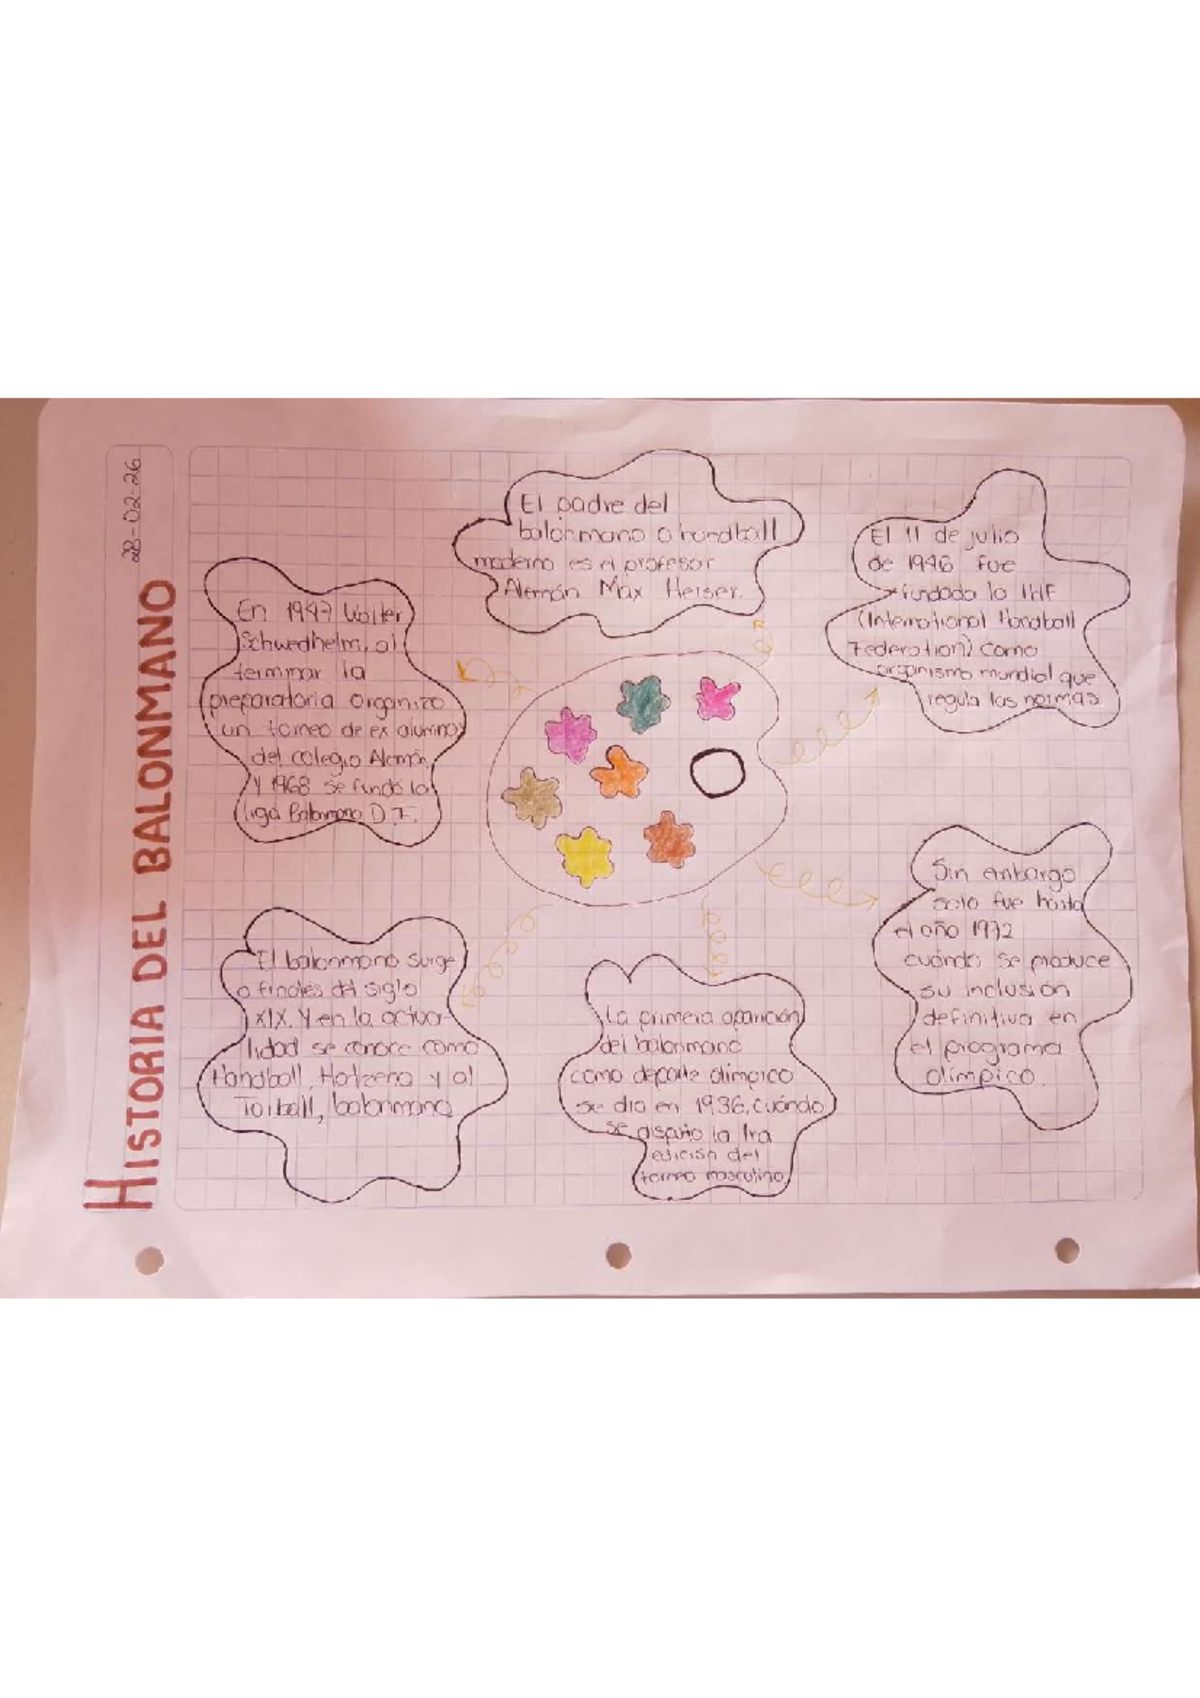 28-02-26
HISTORIA DEL BALONMANO
El padre del
balonmano o handball
moderno es el profesor
Alemán Max Heiser.
El 11 de julio
de 1946 fue
fundada la IHF
(International Handball
Federation) como
organismo mundial que
regula las normas
En 1947 Walter
Schwedhelm, al
terminar la
preparatoria organizo
un torneo de ex alumnos
del colegio Alemán
Y 1968 se fundó la
liga Balonmano D.F.
Sin embargo
solo fue hasta
el año 1972
cuándo se produce
su inclusión
definitiva en
el programa
olímpico.
El balonmano surge
a finales del siglo
XIX. Y en la actua-
lidad se conoce como
Handball, Hatzena y al
Torball, balonmano
La primera aparición
del balonmano
como deporte olímpico
se dio en 1936, cuándo
se disputo la 1ra
edición del
torneo masculino.